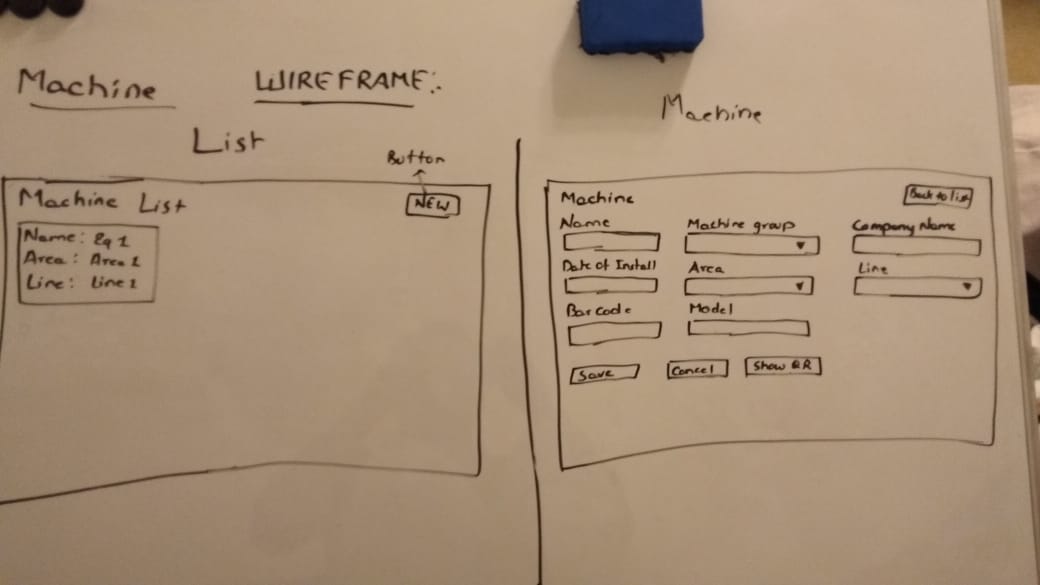 Machine WIREFRAME:
List
Button
Machine List
NEW
Name: Eq 1
Area: Area 1
Line: Line 1
Machine
Machine
Back to list
Name
Machine group
Company Name
Date of Install
Area
Line
Bar Code
Model
Save
Cancel
Show QR